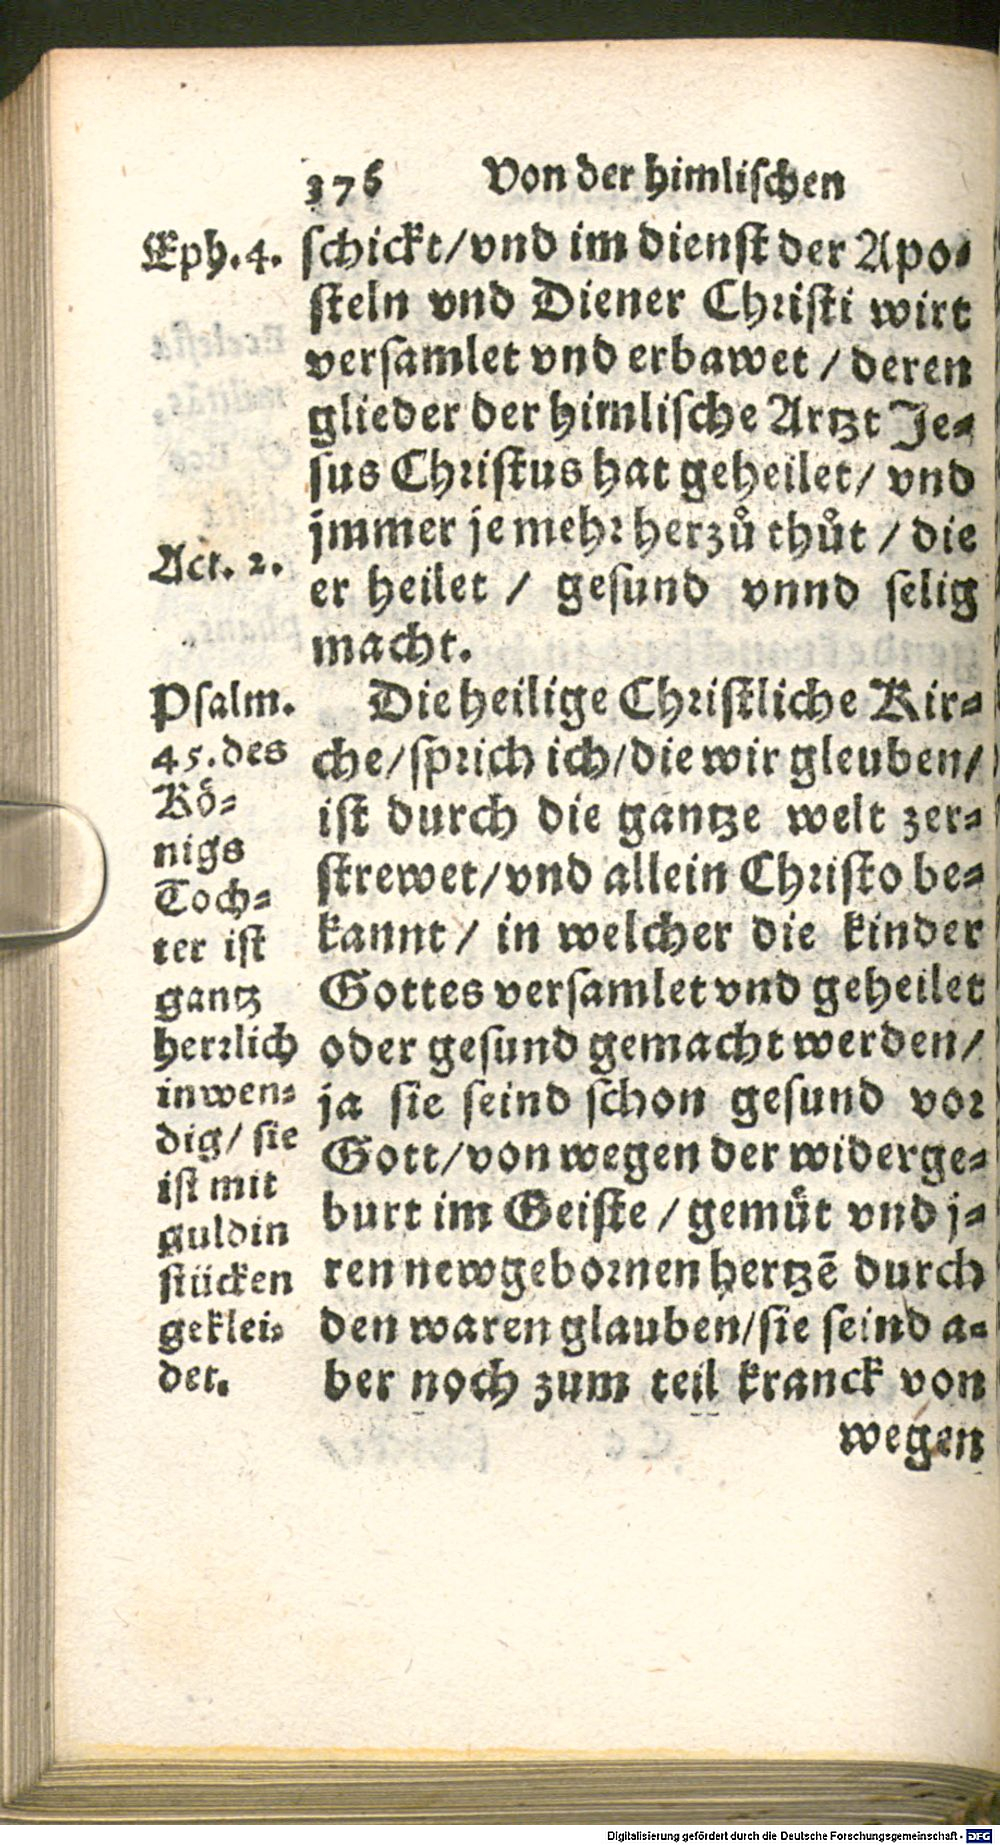 376 Von der himlischen
Eph. 4.
schickt/vnd im dienst der Apo-
steln vnd Diener Christi wirt
versamlet vnd erbawet / deren
glieder der himlische Artzt Je-
sus Christus hat geheilet/ vnd
jmmer je mehr herzů thůt / die
Act. 2.
er heilet / gesund vnnd selig
macht.
Psalm.
45. des
Kö-
nigs
Toch-
ter ist
gantz
herrlich
inwen-
dig/ sie
ist mit
guldin
stücken
geklei-
det.
Die heilige Christliche Kir-
che/sprich ich/die wir gleuben/
ist durch die gantze welt zer-
strewet/vnd allein Christo be-
kannt / in welcher die kinder
Gottes versamlet vnd geheilet
oder gesund gemacht werden/
ja sie seind schon gesund vor
Gott/von wegen der widerge-
burt im Geiste / gemůt vnd j-
ren newgebornen hertzē durch
den waren glauben/sie seind a-
ber noch zum teil kranck von
wegen
Digitalisierung gefördert durch die Deutsche Forschungsgemeinschaft - DFG